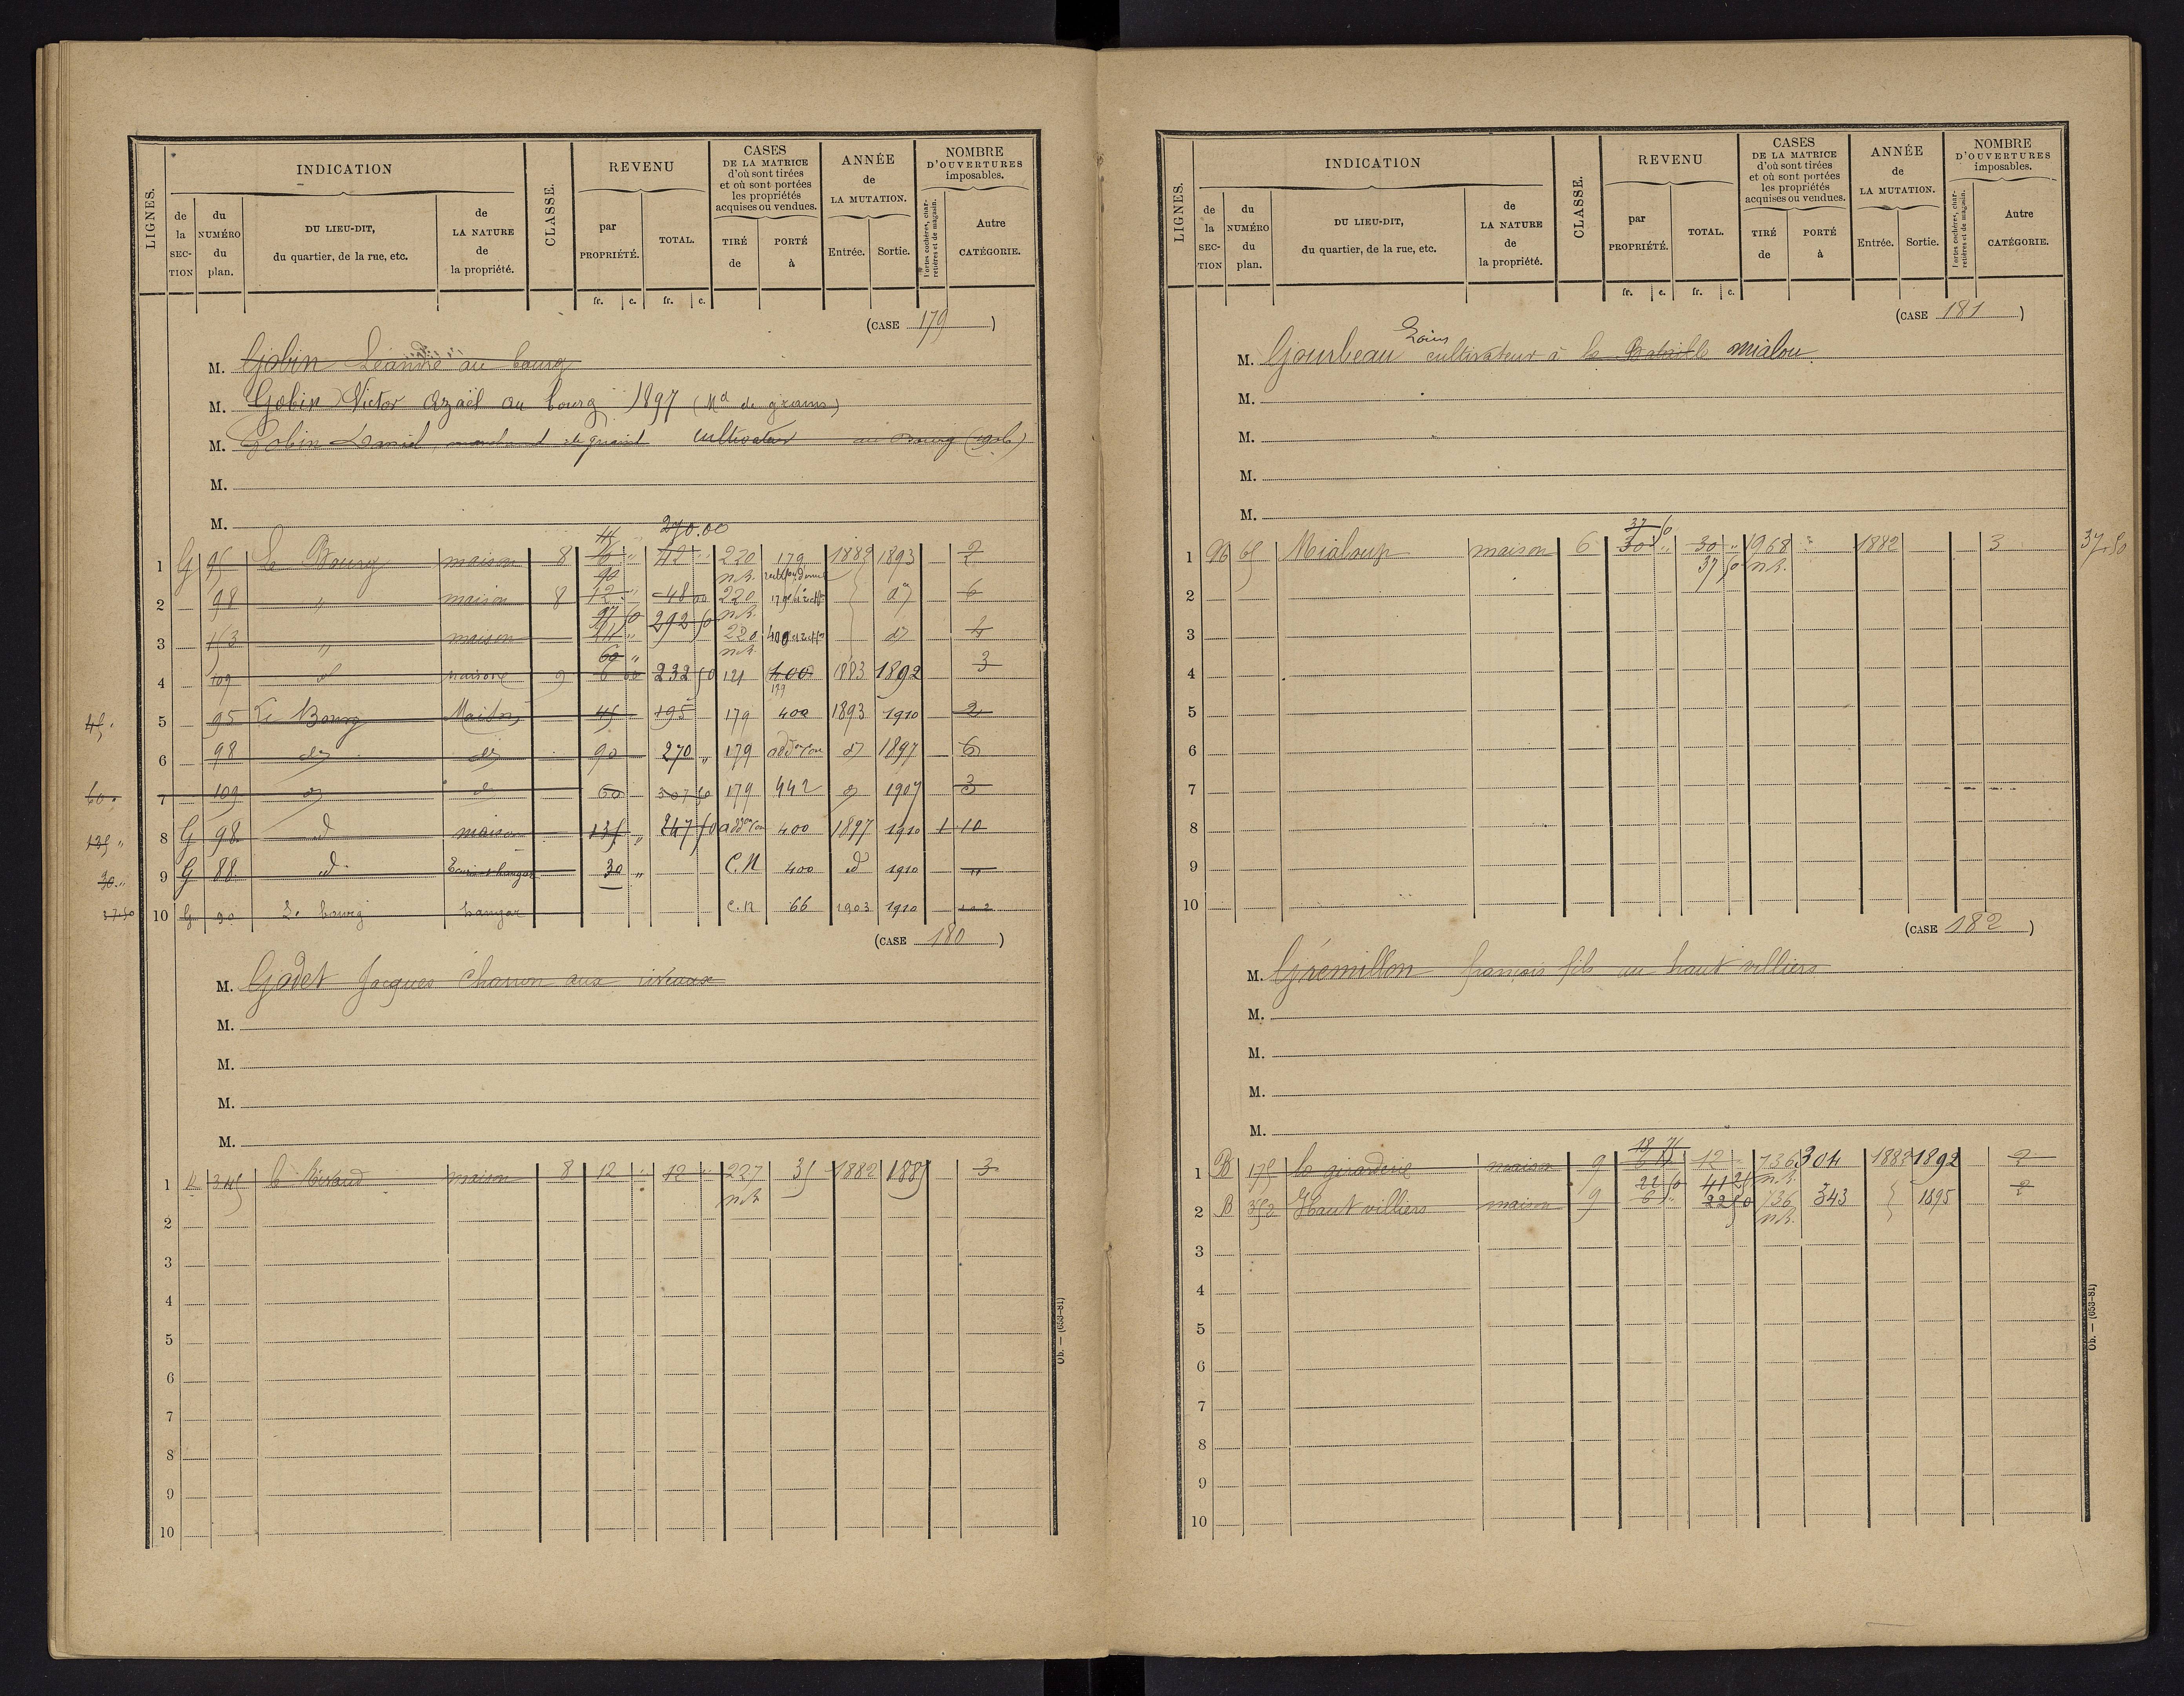 LIGNES.
INDICATION
de la SECTION
du NUMÉRO du plan.
DU LIEU-DIT, du quartier, de la rue, etc.
de LA NATURE de la propriété.
CLASSE.
REVENU
par PROPRIÉTÉ.
TOTAL.
fr. c. fr. c.
CASES DE LA MATRICE d'où sont tirées et où sont portées les propriétés acquises ou vendues.
TIRÉ de
PORTÉ à
ANNÉE de LA MUTATION.
Entrée. Sortie.
NOMBRE D'OUVERTURES imposables.
Portes cochères, charretières et de magasin.
Autre CATÉGORIE.
(CASE 179)
M. Gobin Léandre au bourg
M. Gobin Victor Azaël au bourg 1897 (Md de grains)
M. Gobin Daniel, marchand de grains cultivateur au bourg
M.
M. 270.00
1 G 95 Le Bourg maison 8 6 " 42 " 220 179 1882 1893 2
90 n.R.
2 98 " maison 8 12 " 48 00 220 d° 6
97 50 292 50 n.R.
3 153 " maison 220 400 d° 4
60 " n.R.
4 109 d° maison 9 6 00 232 50 121 400 1883 1892 3
179
45 " 5 95 Le Bourg Maison 45 195 179 400 1893 1910 2
6 98 d° d° 90 270 " 179 addon con d° 1897 6
60 " 7 109 d° d° 60 307 50 179 442 d° 1907 3
135 " 8 G 98 d° maison 135 " 247 50 addon con 400 1897 1910 1 10
30 " 9 G 88 d° Ecurie et hangar 30 " C.N 400 d° 1910 "
37.50 10 G 90 Le bourg hangar C.N 66 1903 1910
(CASE 180)
M. Godet Jacques Charron aux riveaux
M.
M.
M.
M.
1 245 le Rivaud maison 8 12 " 12 " 227 35 1882 1885 3
n.R
2
3
4
5
6
7
8
9
10
Ob. — (653-81)
LIGNES.
INDICATION
de la SECTION
du NUMÉRO du plan.
DU LIEU-DIT, du quartier, de la rue, etc.
de LA NATURE de la propriété.
CLASSE.
REVENU
par PROPRIÉTÉ.
TOTAL.
fr. c. fr. c.
CASES DE LA MATRICE d'où sont tirées et où sont portées les propriétés acquises ou vendues.
TIRÉ de
PORTÉ à
ANNÉE de LA MUTATION.
Entrée. Sortie.
NOMBRE D'OUVERTURES imposables.
Portes cochères, charretières et de magasin.
Autre CATÉGORIE.
(CASE 181)
Louis
M. Gourbeau cultivateur à la mialou
M.
M.
M.
M.
37 50
1 65 Mialoup maison 6 30 " 30 " 1968 " 1882 3 37.50
37 50 n.R.
2
3
4
5
6
7
8
9
10
(CASE 182)
M. Grémillon françois fils au haut villiers
M.
M.
M.
M.
18 75
1 B 175 la girarderie maison 9 6 " 12 736 304 1882 1892 2
22 50 41 25 n.R.
2 B 352 Haut villiers maison 9 6 " 22 50 736 343 1895 2
n.R.
3
4
5
6
7
8
9
10
Ob. — (653-81)